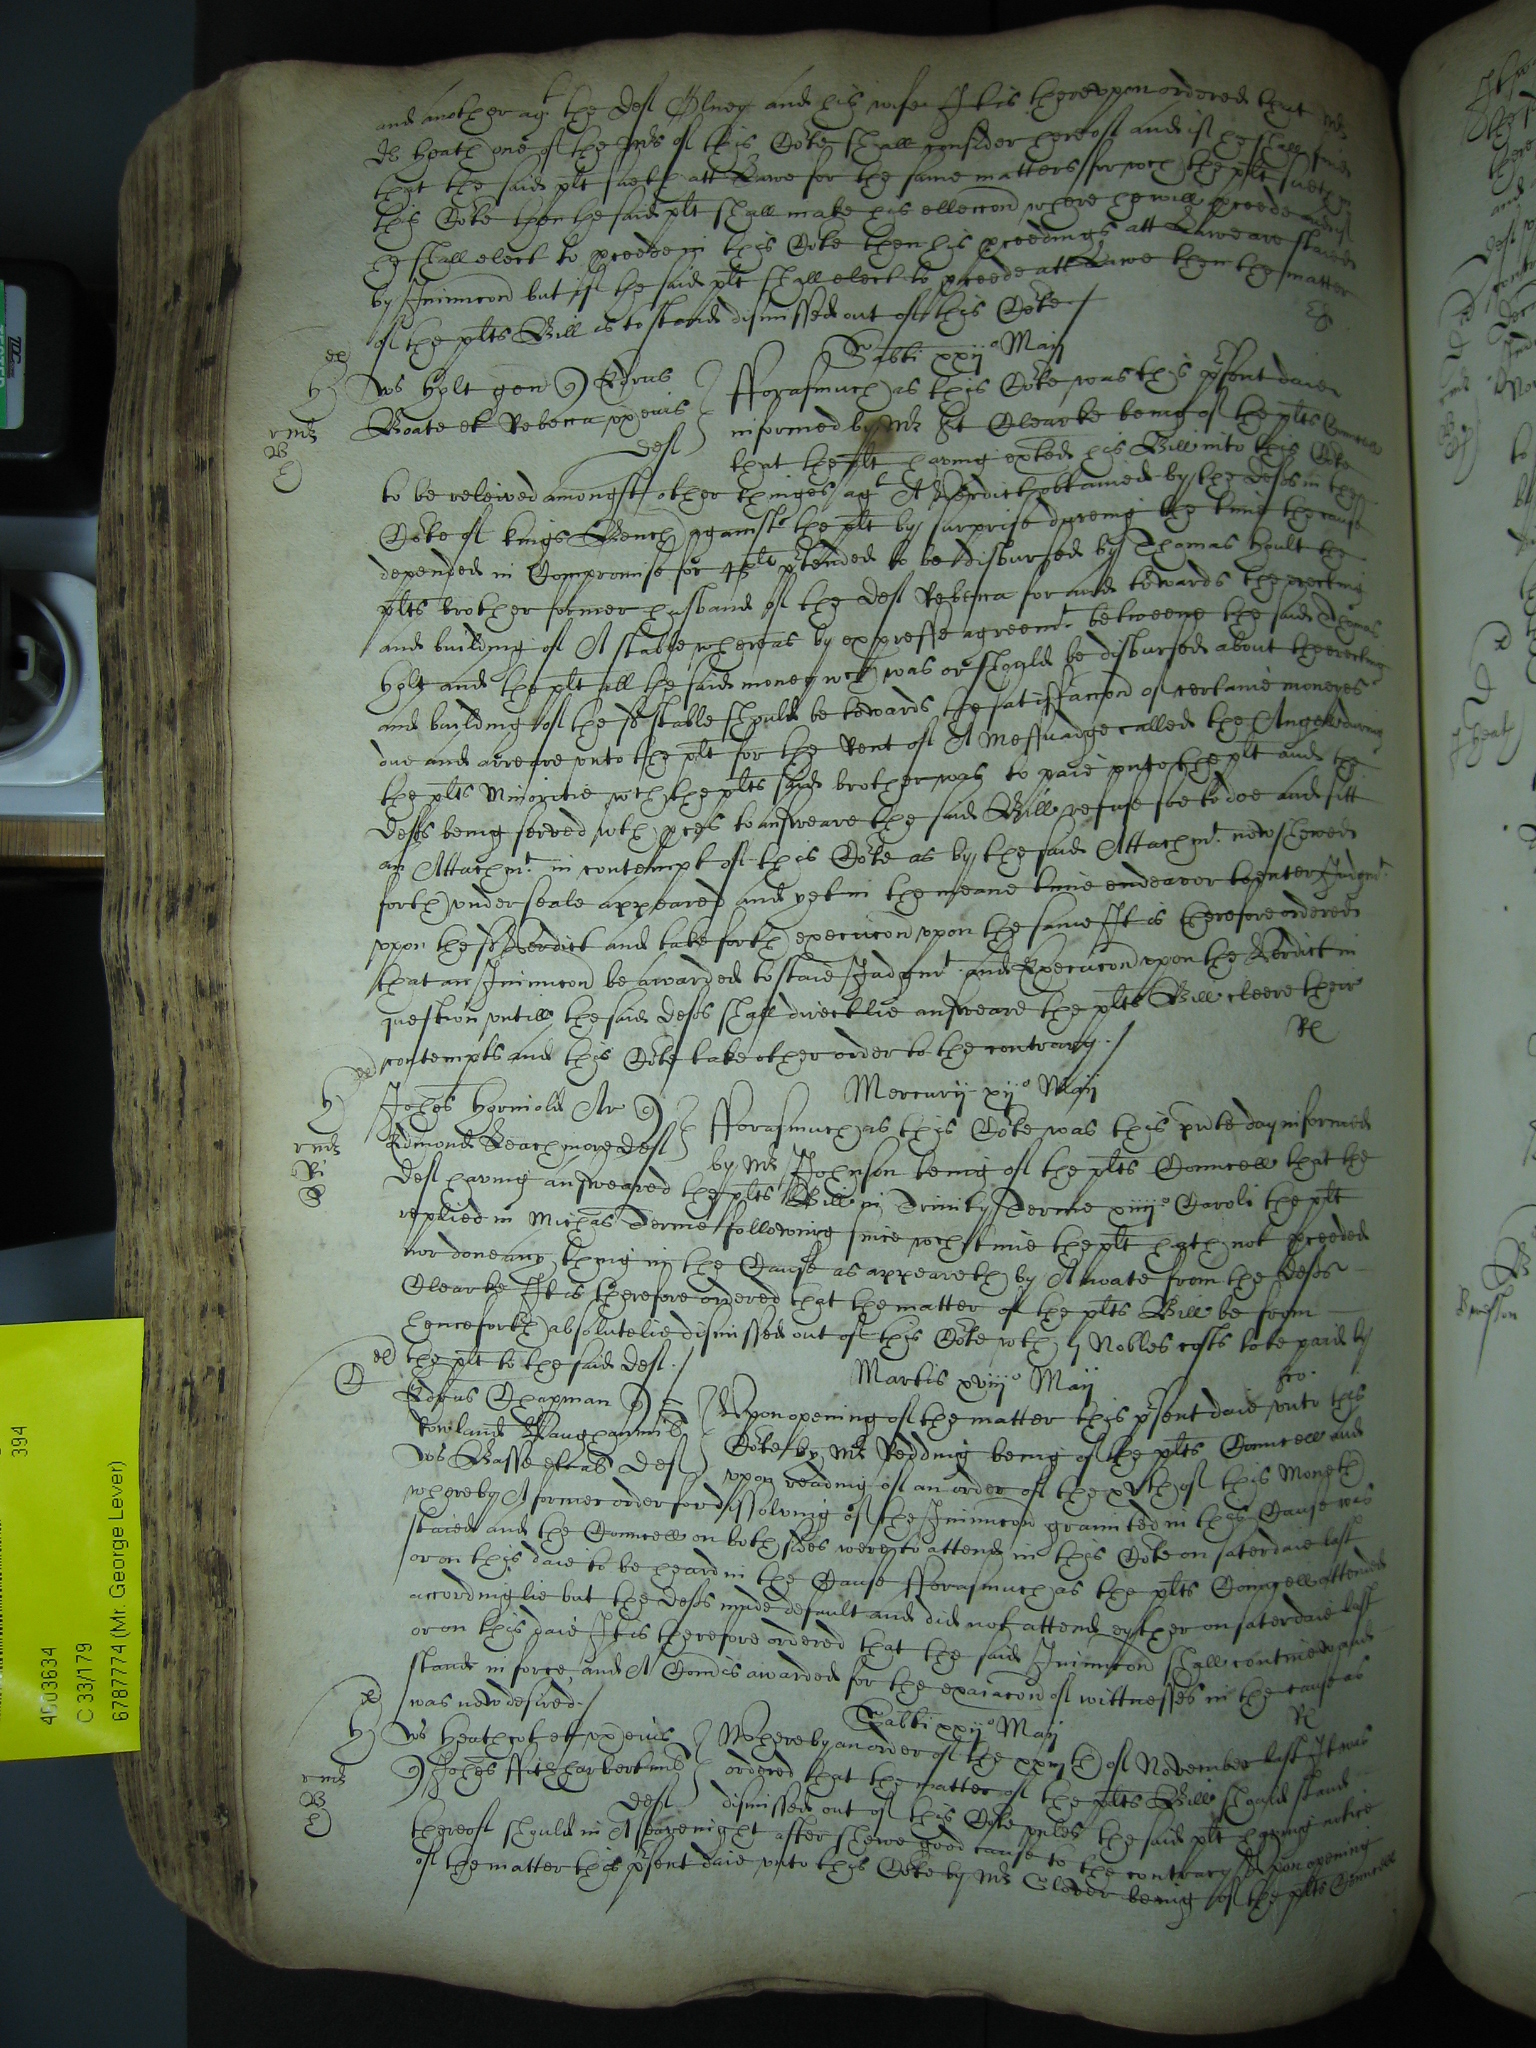 and another agt the deft Olney and his wife It is thereupon ordered that Mr
Dr Heath one of the Mrs of this Co:te shall consider hereof and if he shall finde
that the said plt sueth att Lawe for the same matters for wch the plt sueth in
this Co:te then the said plt shall make his elleccon where he will pceede and if
he shall elect to pceede in this Co:te then his pceedings att Lawe are staied
by Iniuncon but if the said plt shall elect to pceede att Lawe then the matter
of the plts Bill is to stand dismissed out of this Co:te
Sabbti xxijo Maij
Ws Holt gen Edrus
Boate et Rebecca vx eius
deft
fforasmuch as this Co:te was this psent daie
informed by Mr St Clearke being of the plts Councell
that the plt having exhted his Bill into this Co:te
to be releived amongst other thinges agt A Verdict obtained by the defts in the
Co:te of Kings Bench against the plt by surprise dureing the time the cause
depended in Compromise for 45li ptended to be disbursed by Thomas Hoult the
plts brother former husband of the deft Rebecca for and towards the erecting
and building of A stable whereas by expresse agreemt betweene the said Thomas
Holt and the plt all the said money wch was or should be disbursed about the erecting
and building of the sd stable should be towards the satisfaccon of certaine moneyes
due and arreare vnto the plt for the Rent of A Messuadge called the Angell during
the plts Minoritie wch the plts said brother was to paie vnto the plt and the
defts being served wth pces to answeare the said Bill refuse soe to doe and sitt
an Attachmt in contempt of this Co:te as by the said Attachmt now shewed
forth vnder seale appeared and yet in the meane time endeavor to enter Judgmt
vpon the sd Verdict and take forth execucon vpon the same It is therefore ordered
that an Iniuncon be awarded to staie Judgmt and Execucon vpon the Verdict in
question vntill the said defts shall directlie answeare the plts Bill cleere their
contempts and this Co:te take other order to the contrary
Mercurij xijo Maij
Johes Horniold Ar
Edmond Leachmore deft
fforasmuch as this Co:te was this pnte day informed
by Mr Johnson being of the plts Councell that the
deft having answeared the plts Bill in Trinity Terme xiiijo Caroli the plt
replied in Michas Terme following since wch time the plt hath not pceeded
nor done any thing in the Cause as appeareth by A noate from the defts
Clearke It is therefore ordered that the matter of the plts Bill be from
henceforth absolutelie dismissed out of this Co:te wth Nobles costs to be paid by
the plt to the said deft
Martis xviijo Maij
Edrus Chapman
Rowland Vaughan mil
Ws Basse et al deft
Vpon opening of the matter this psent daie vnto this
Co:te by Mr Redding being of the plts Councell and
vpon reading of an order of the xvth of this Moneth
whereby A former order for dissolving of the Iniuncon graunted in this Cause was
staied and the Councell on both sides were to attend in this Co:te on saterdaie last
or on this daie to be heard in the Cause fforasmuch as the plts Councell attended
accordinglie but the defts made default and did not attend eyther on saterdaie last
or on this daie It is therefore ordered that the said Iniuncon shall continew and
stand in force and A Comis awarded for the exaiacon of wittnesses in the cause as
was now desired
Sabbti xxijo Maij
Ws Heathcot et vx eius
Johes ffitzharbert mil
deft
Whereby an order of the xxiijth of November last It was
ordered that the matter of the plts Bill should stand
dismissed out of this Co:te vnles the said plt having notice
thereof should in A sevenight after shewe good cause to the contrary Vpon opening
of the matter this psent daie vnto this Co:te by Mr Glover being of the plts Councell
394
4003634
C 33/179
6787774 (Mr. George Lever)